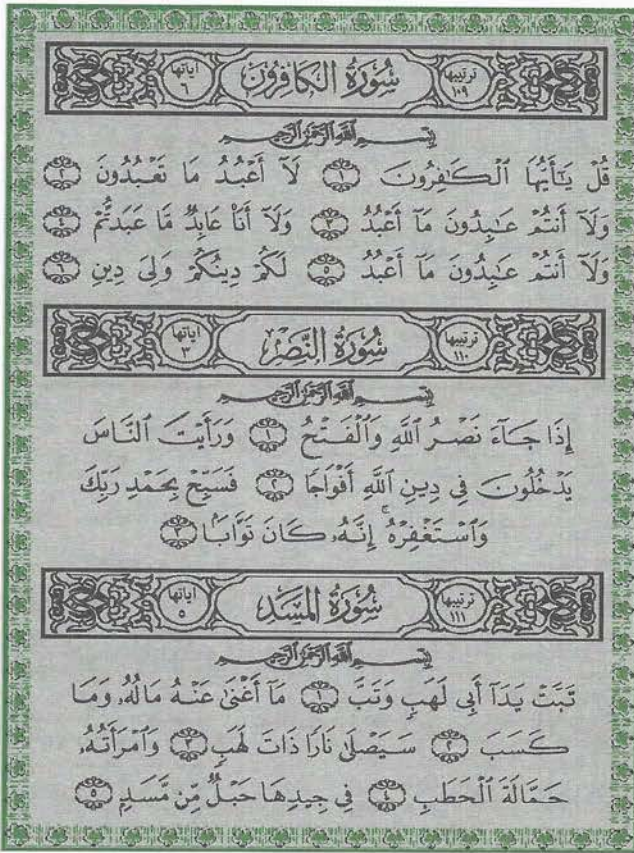 ترتيبها ١٠٩ سُورَةُ الكَافِرُونَ آياتها ٦
بِسْمِ اللَّهِ الرَّحْمَٰنِ الرَّحِيمِ
قُلْ يَٰٓأَيُّهَا ٱلْكَٰفِرُونَ ١ لَآ أَعْبُدُ مَا تَعْبُدُونَ ٢
وَلَآ أَنتُمْ عَٰبِدُونَ مَآ أَعْبُدُ ٣ وَلَآ أَنَا۠ عَابِدٌ مَّا عَبَدتُّمْ ٤
وَلَآ أَنتُمْ عَٰبِدُونَ مَآ أَعْبُدُ ٥ لَكُمْ دِينُكُمْ وَلِىَ دِينِ ٦
ترتيبها ١١٠ سُورَةُ النَّصْرِ آياتها ٣
بِسْمِ اللَّهِ الرَّحْمَٰنِ الرَّحِيمِ
إِذَا جَآءَ نَصْرُ ٱللَّهِ وَٱلْفَتْحُ ١ وَرَأَيْتَ ٱلنَّاسَ
يَدْخُلُونَ فِى دِينِ ٱللَّهِ أَفْوَاجًا ٢ فَسَبِّحْ بِحَمْدِ رَبِّكَ
وَٱسْتَغْفِرْهُ ۚ إِنَّهُۥ كَانَ تَوَّابًۢا ٣
ترتيبها ١١١ سُورَةُ المَسَدِ آياتها ٥
بِسْمِ اللَّهِ الرَّحْمَٰنِ الرَّحِيمِ
تَبَّتْ يَدَآ أَبِى لَهَبٍ وَتَبَّ ١ مَآ أَغْنَىٰ عَنْهُ مَالُهُۥ وَمَا
كَسَبَ ٢ سَيَصْلَىٰ نَارًا ذَاتَ لَهَبٍ ٣ وَٱمْرَأَتُهُۥ
حَمَّالَةَ ٱلْحَطَبِ ٤ فِى جِيدِهَا حَبْلٌ مِّن مَّسَدٍۭ ٥